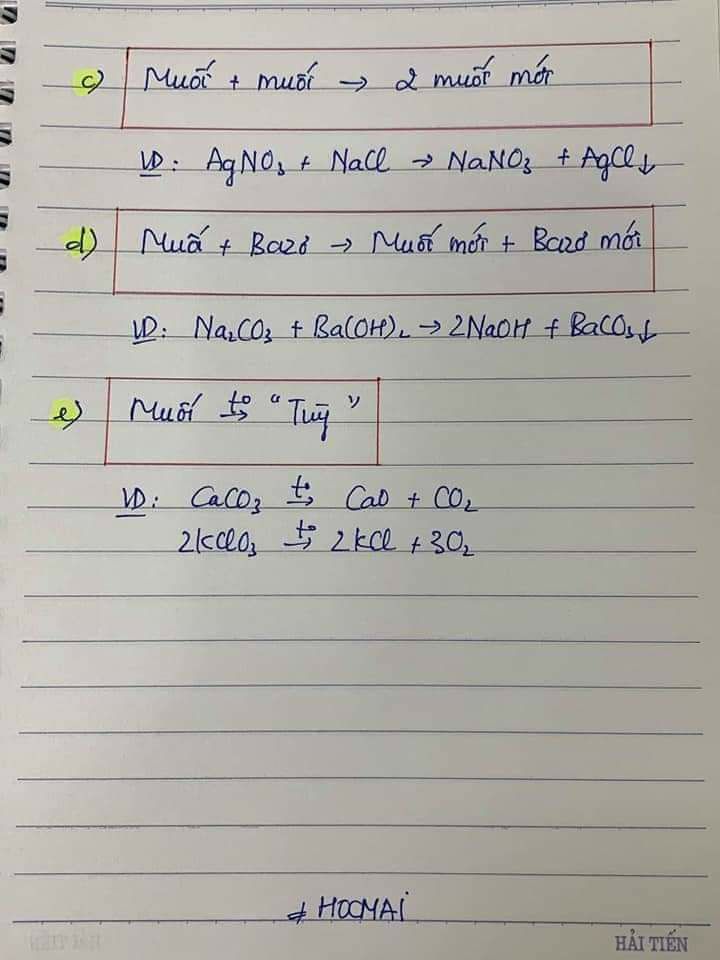 c) Muối + muối → 2 muối mới
VD: AgNO₃ + NaCl → NaNO₃ + AgCl↓
d) Muối + Bazơ → Muối mới + Bazơ mới
VD: Na₂CO₃ + Ba(OH)₂ → 2NaOH + BaCO₃↓
e) Muối t° → "Tuỳ"
VD: CaCO₃ t° → CaO + CO₂
2KClO₃ t° → 2KCl + 3O₂
# HOCMAI
HẢI TIẾN